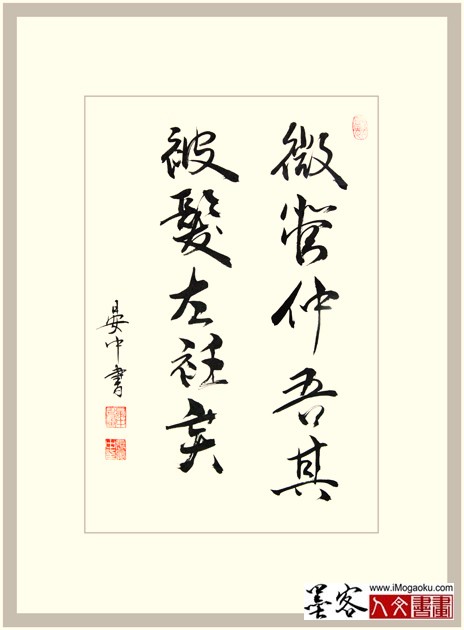 微管仲吾其
被髮左衽矣
晏中書
墨客
www.iMogaoku.com
人文書畫